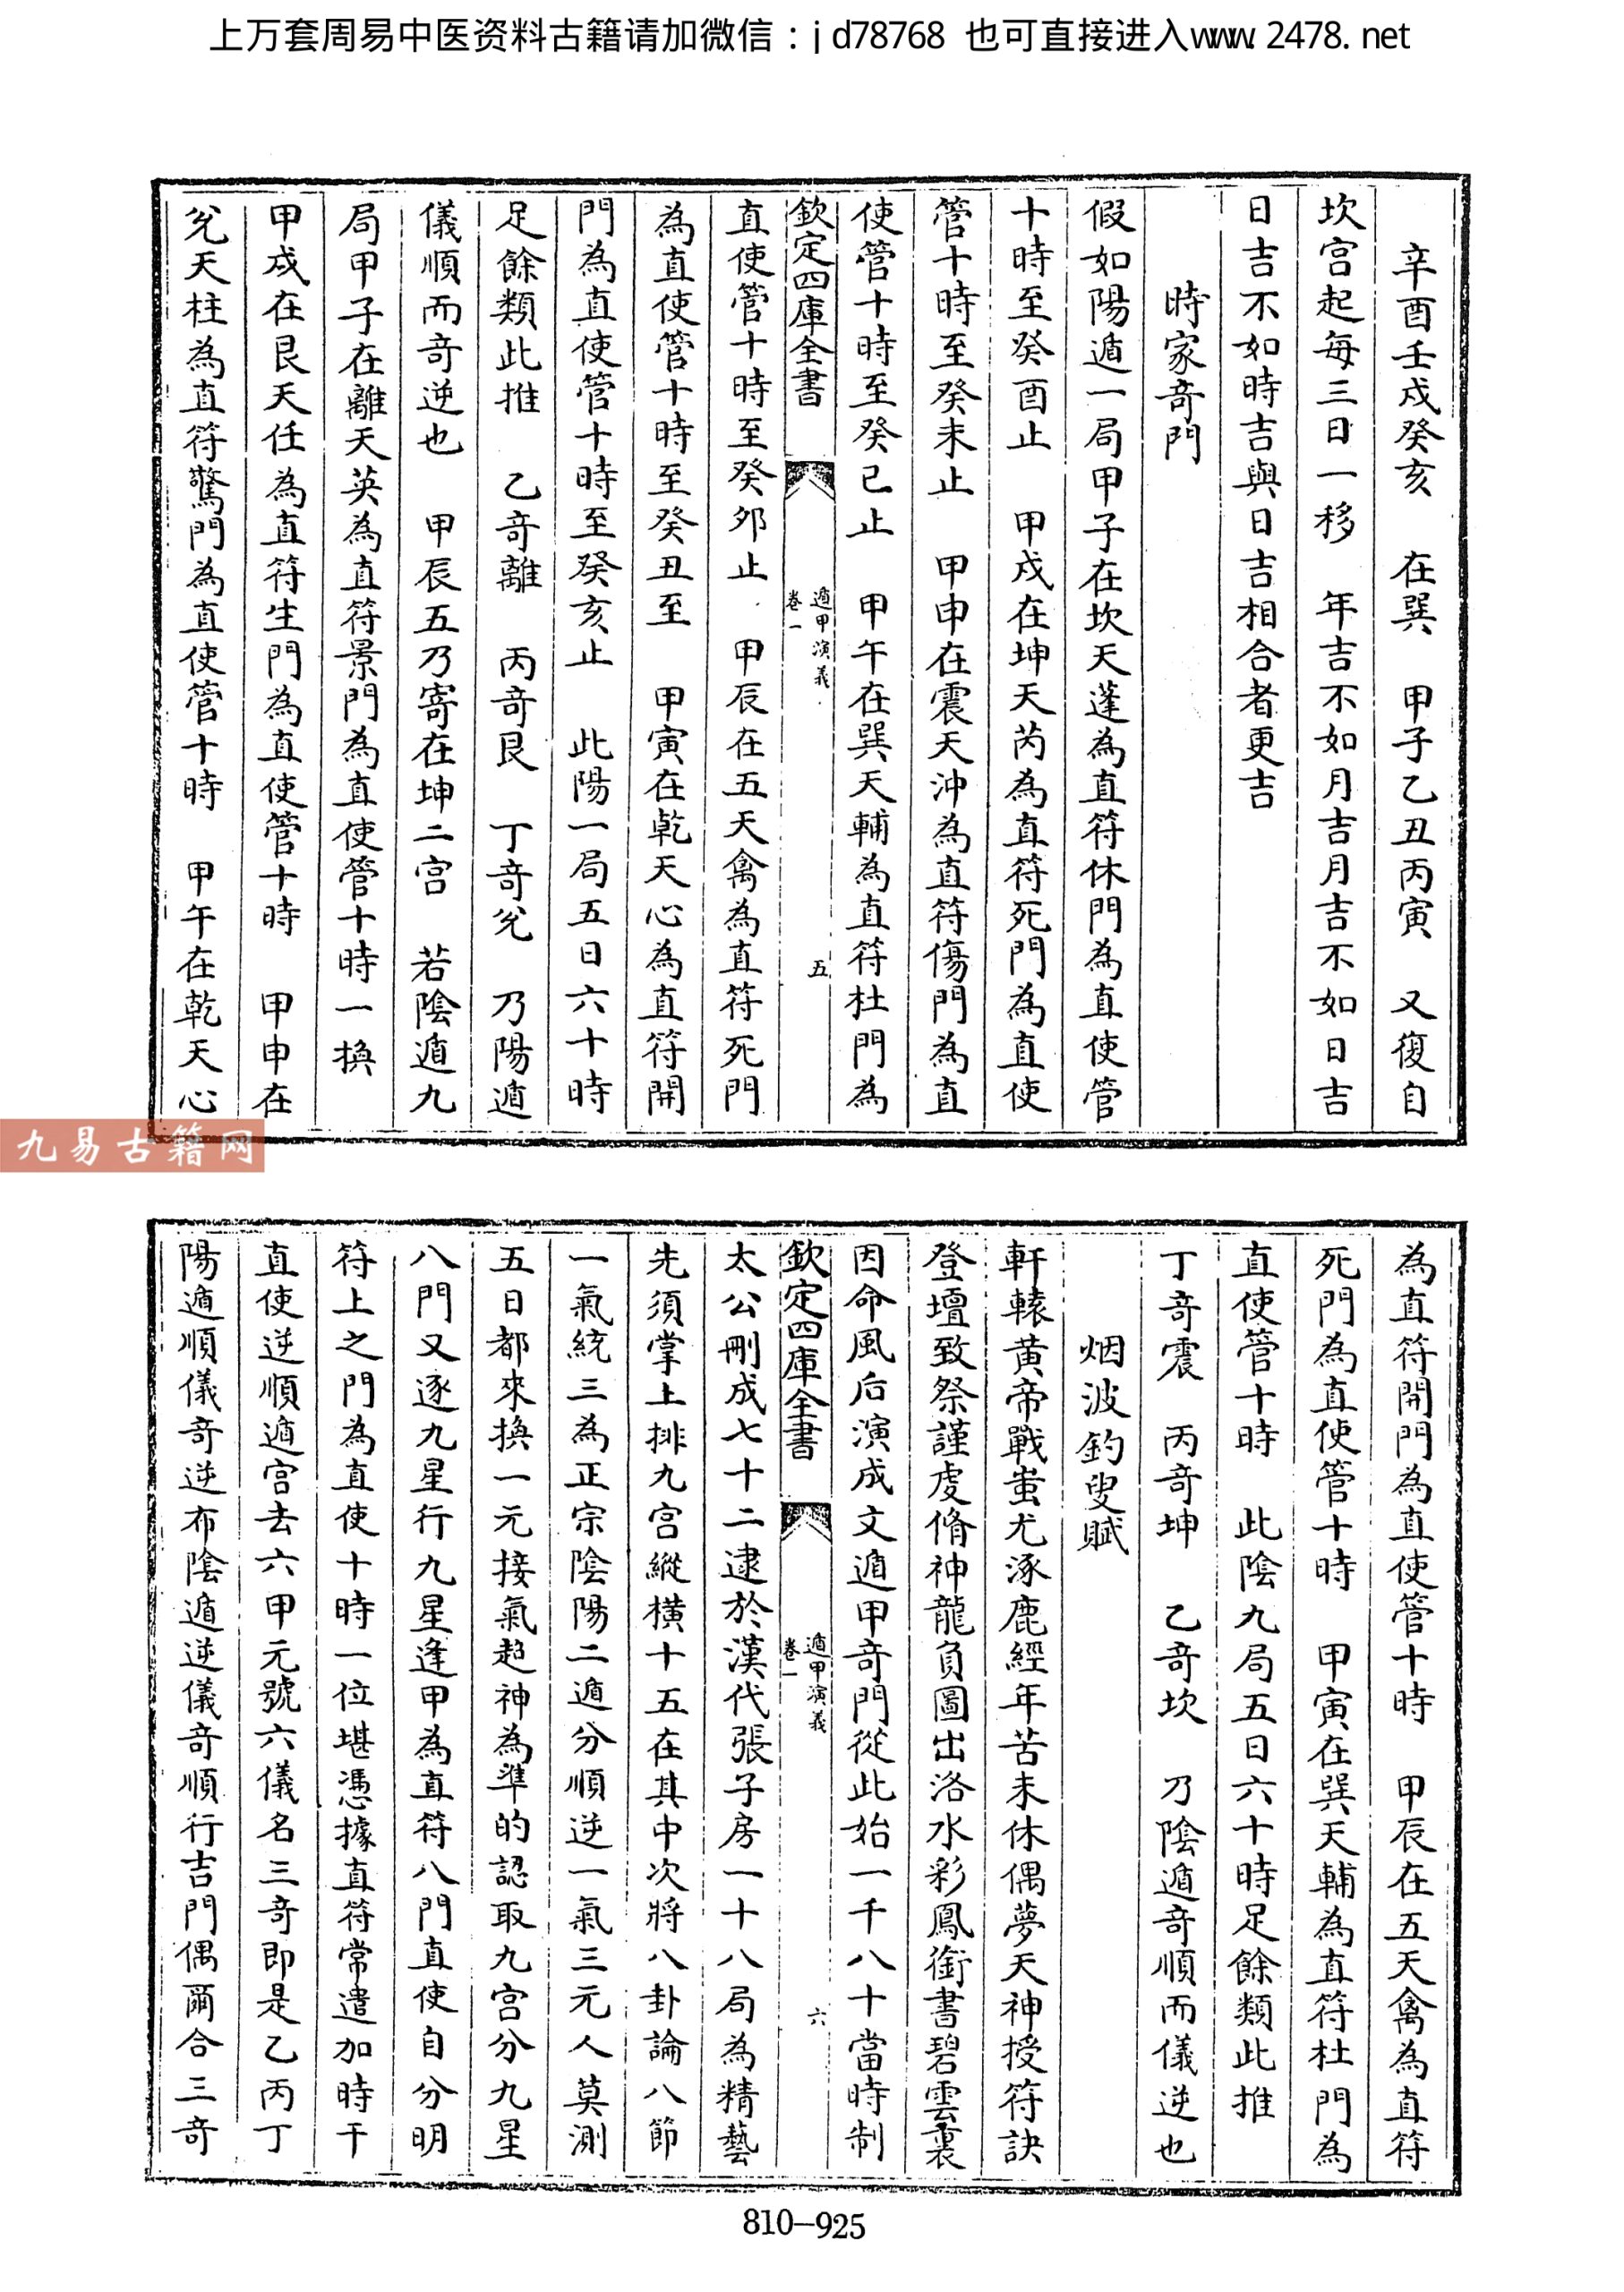 上万套周易中医资料古籍请加微信：jd78768 也可直接进入www.2478.net
辛酉壬戌癸亥　在巽　甲子乙丑丙寅　又復自
坎宫起每三日一移　年吉不如月吉月吉不如日吉
日吉不如時吉與日吉相合者更吉
時家竒門
假如陽遁一局甲子在坎天蓬為直符休門為直使管
十時至癸酉止　甲戌在坤天芮為直符死門為直使
管十時至癸未止　甲申在震天沖為直符傷門為直
使管十時至癸已止　甲午在巽天輔為直符杜門為
欽定四庫全書
遁甲演義
卷一
五
直使管十時至癸夘止　甲辰在五天禽為直符死門
為直使管十時至癸丑至　甲寅在乾天心為直符開
門為直使管十時至癸亥止　此陽一局五日六十時
足餘類此推　乙竒離　丙竒艮　丁竒兊　乃陽遁
儀順而竒逆也　甲辰五乃寄在坤二宫　若陰遁九
局甲子在離天英為直符景門為直使管十時一換
甲戌在艮天任為直符生門為直使管十時　甲申在
兊天柱為直符驚門為直使管十時　甲午在乾天心
九易古籍网
為直符開門為直使管十時　甲辰在五天禽為直符
死門為直使管十時　甲寅在巽天輔為直符杜門為
直使管十時　此陰九局五日六十時足餘類此推
丁竒震　丙竒坤　乙竒坎　乃陰遁竒順而儀逆也
烟波釣叟賦
軒轅黄帝戰蚩尤涿鹿經年苦未休偶夢天神授符訣
登壇致祭謹虔脩神龍負圖出洛水彩鳳銜書碧雲裏
因命風后演成文遁甲竒門從此始一千八十當時制
欽定四庫全書
遁甲演義
卷一
六
太公刪成七十二逮於漢代張子房一十八局為精藝
先須掌上排九宫縱橫十五在其中次將八卦論八節
一氣統三為正宗陰陽二遁分順逆一氣三元人莫測
五日都來換一元接氣超神為準的認取九宫分九星
八門又逐九星行九星逢甲為直符八門直使自分明
符上之門為直使十時一位堪憑據直符常遣加時干
直使逆順遁宫去六甲元號六儀名三竒即是乙丙丁
陽遁順儀竒逆布陰遁逆儀竒順行吉門偶爾合三竒
810—925